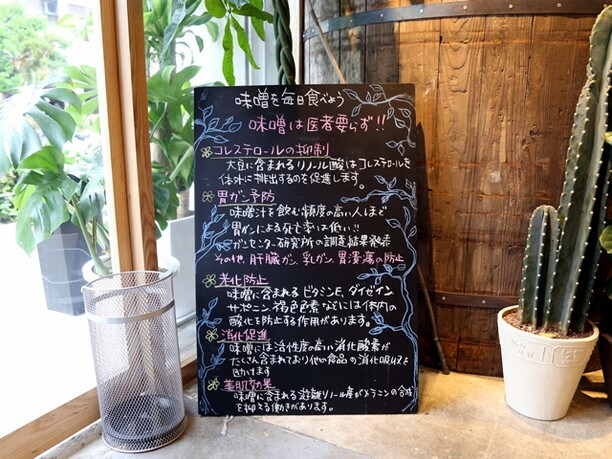 味噌を毎日食べよう
味噌は医者要らず!!
コレステロールの抑制
大豆に含まれるリノール酸はコレステロールを
体外に排出するのを促進します。
胃ガン予防
味噌汁を飲む頻度の高い人ほど
胃ガンによる死亡率は低い!!
ガンセンター研究所の調査結果発表
その他、肝臓ガン、乳ガン、胃潰瘍の防止
老化防止
味噌に含まれるビタミンE、ダイゼイン、
サポニン、褐色色素などには体内の
酸化を防止する作用があります。
消化促進
味噌には活性度の高い消化酵素が
たくさん含まれており他の食品の消化吸収を
助けます
美肌効果
味噌に含まれる遊離リノール酸がメラニンの合成
を抑える働きがあります。